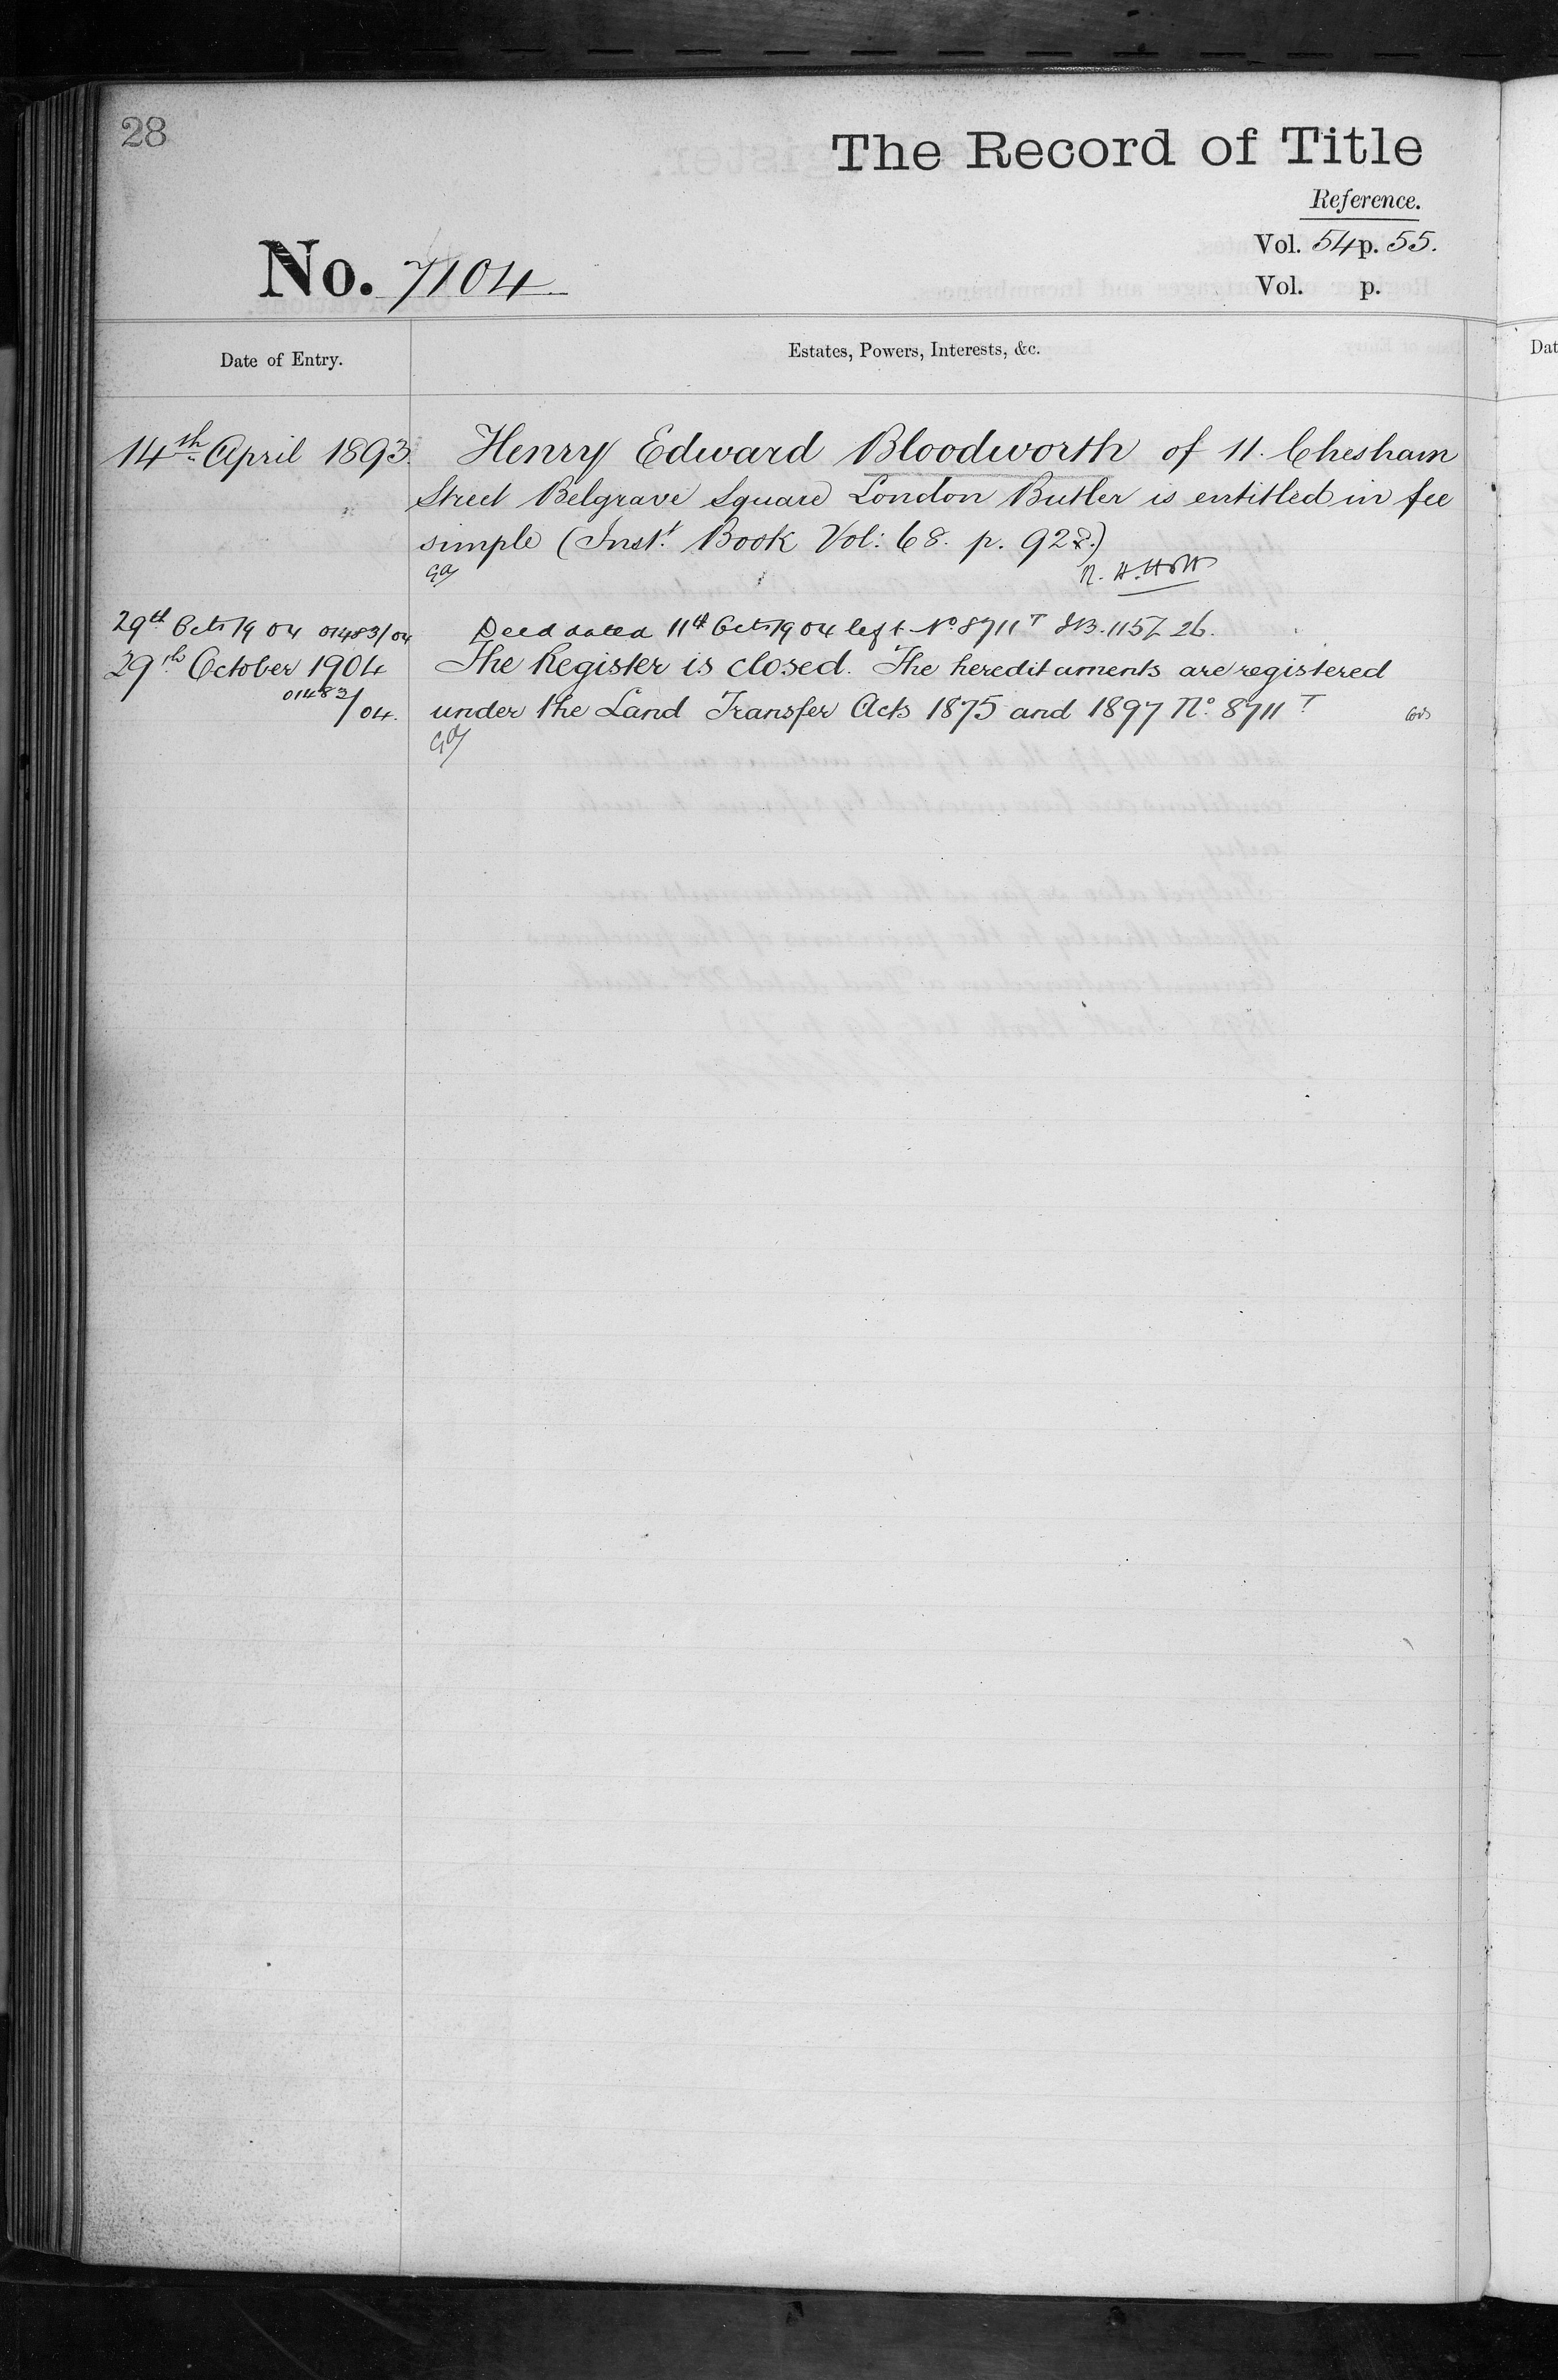 28
The Record of Title
Reference.
Vol. 54 p. 55.
No. 7104
Vol. p.
Date of Entry.
Estates, Powers, Interests, &c.
14th April 1893. Henry Edward Bloodworth of 11. Chesham
Street Belgrave Square London Butler is entitled in fee
simple (Inst. Book Vol: 68. p. 922.)
29th Octr 1904 01483/04 Deed dated 11th Octr 1904 left No 8711 T 26.
29th October 1904 The Register is closed. The hereditaments are registered
01483/04. under the Land Transfer Acts 1875 and 1897 No. 8711 T
Dat